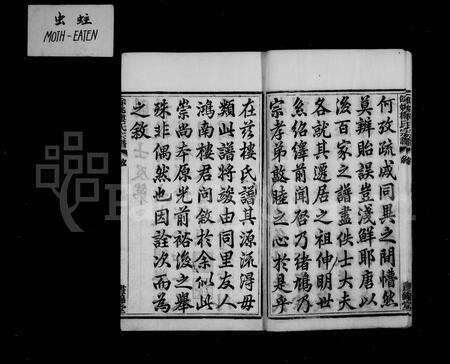 虫蛀
MOTH-EATEN
何致疏戚同異之間懵然
莫辨貽誤豈淺鮮耶唐以
後百家之譜盡佚士大夫
各就其遷居之祖伸明世
系紹偉前聞石乃緒鴻乃
宗孝弟敦睦之心於是乎
在茲樓氏譜其源流得毋
類此譜將竣由同里友人
鴻南樓君問敘於余似此
崇尚本原光前裕後之舉
殊非偶然也因詮次而為
之敘